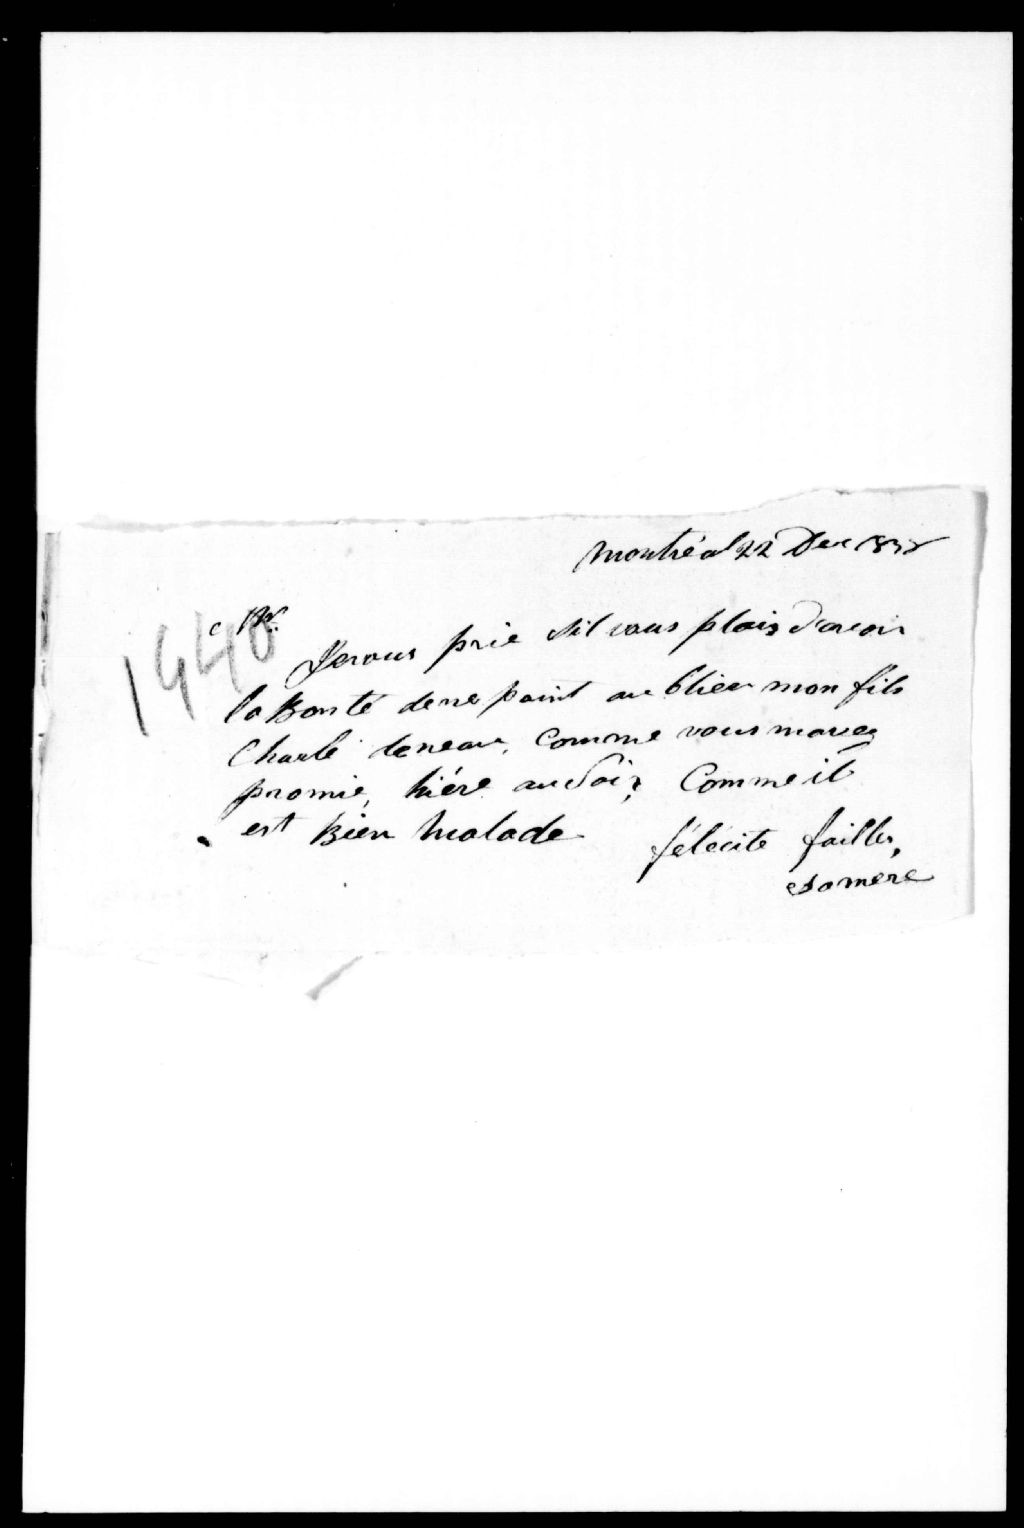 Montréal 22 Dec 1838
Mr.
1440
Je vous prie sil vous plais davoir
la Bonté de ne point au blier mon fils
Charle teneau, comme vous mavez
promie, hiére au Soir, Comme il
est Bien Malade
félécite failler,
sa mere